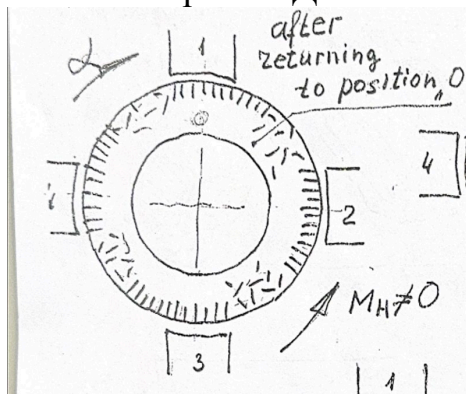 α
1
after
returning
to position „0
4
4
2
Mн≠0
3
1